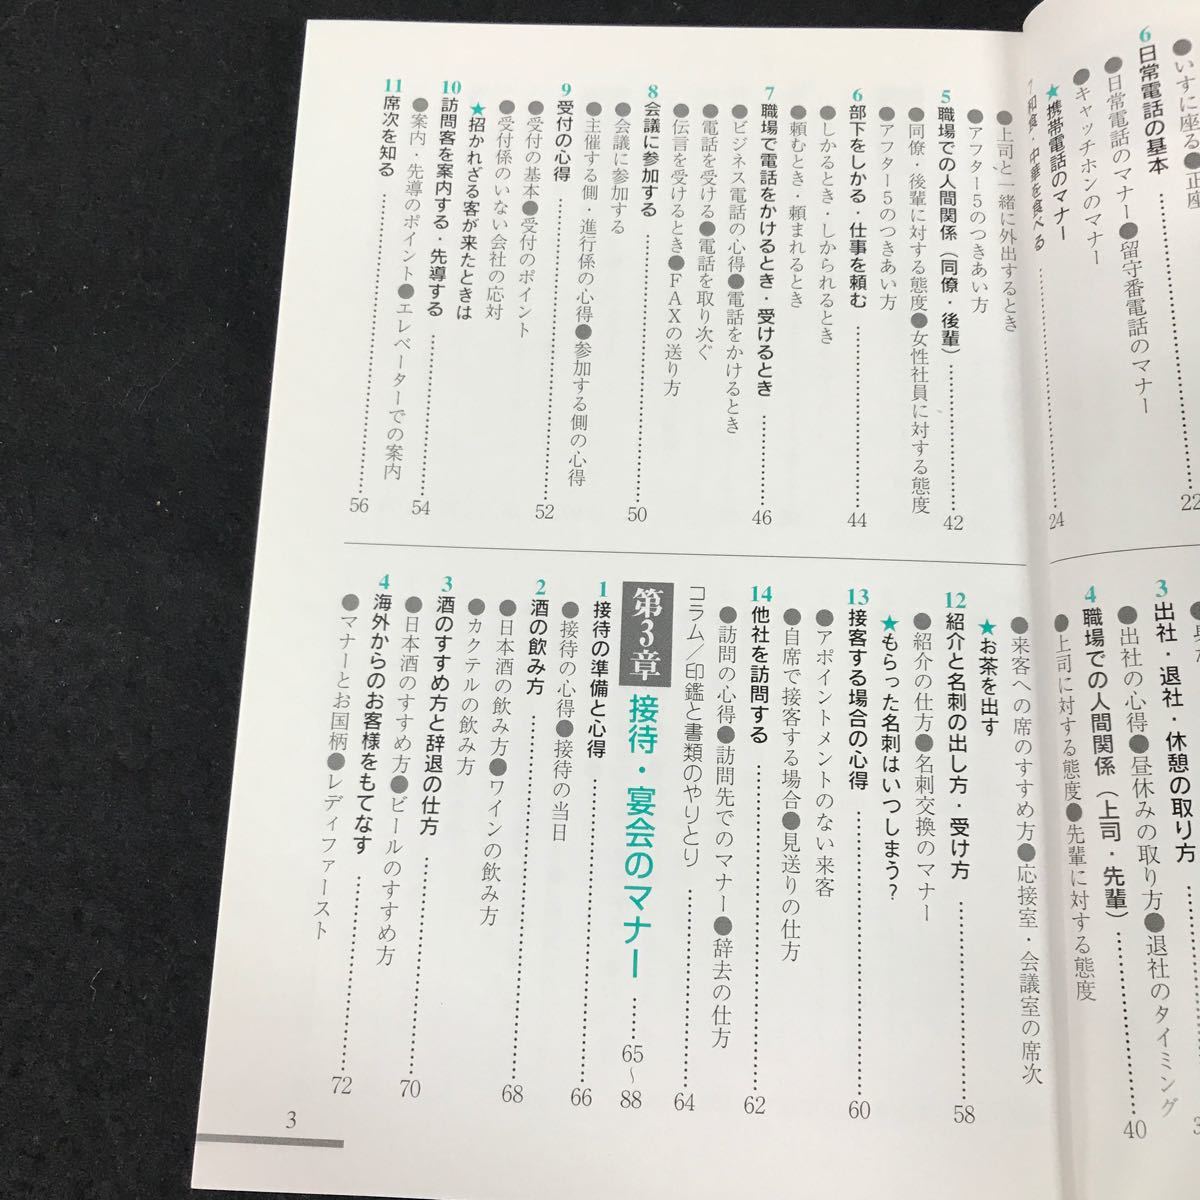 ●いすに座る●正座
6 日常電話の基本
22
●日常電話のマナー●留守番電話のマナー
●キャッチホンのマナー
★携帯電話のマナー
7 和食・中華を食べる
24
3 出社・退社・休憩の取り方
●出社の心得●昼休みの取り方●退社のタイミング
4 職場での人間関係（上司・先輩）
40
●上司に対する態度●先輩に対する態度
●上司と一緒に外出するとき
●アフター5のつきあい方
5 職場での人間関係（同僚・後輩）
42
●同僚・後輩に対する態度●女性社員に対する態度
●アフター5のつきあい方
6 部下をしかる・仕事を頼む
44
●しかるとき・しかられるとき
●頼むとき・頼まれるとき
7 職場で電話をかけるとき・受けるとき
46
●ビジネス電話の心得●電話をかけるとき
●電話を受ける●電話を取り次ぐ
●伝言を受けるとき●FAXの送り方
8 会議に参加する
50
●会議に参加する
●主催する側・進行係の心得●参加する側の心得
9 受付の心得
52
●受付の基本●受付のポイント
●受付係のいない会社の応対
★招かれざる客が来たときは
10 訪問客を案内する・先導する
54
●案内・先導のポイント●エレベーターでの案内
11 席次を知る
56
●来客への席のすすめ方●応接室・会議室の席次
★お茶を出す
12 紹介と名刺の出し方・受け方
58
●紹介の仕方●名刺交換のマナー
★もらった名刺はいつしまう？
13 接客する場合の心得
60
●アポイントメントのない来客
●自席で接客する場合●見送りの仕方
14 他社を訪問する
62
●訪問の心得●訪問先でのマナー●辞去の仕方
コラム／印鑑と書類のやりとり
64
第3章 接待・宴会のマナー
65～88
1 接待の準備と心得
66
●接待の心得●接待の当日
2 酒の飲み方
68
●日本酒の飲み方●ワインの飲み方
●カクテルの飲み方
3 酒のすすめ方と辞退の仕方
70
●日本酒のすすめ方●ビールのすすめ方
4 海外からのお客様をもてなす
72
●マナーとお国柄●レディファースト
3